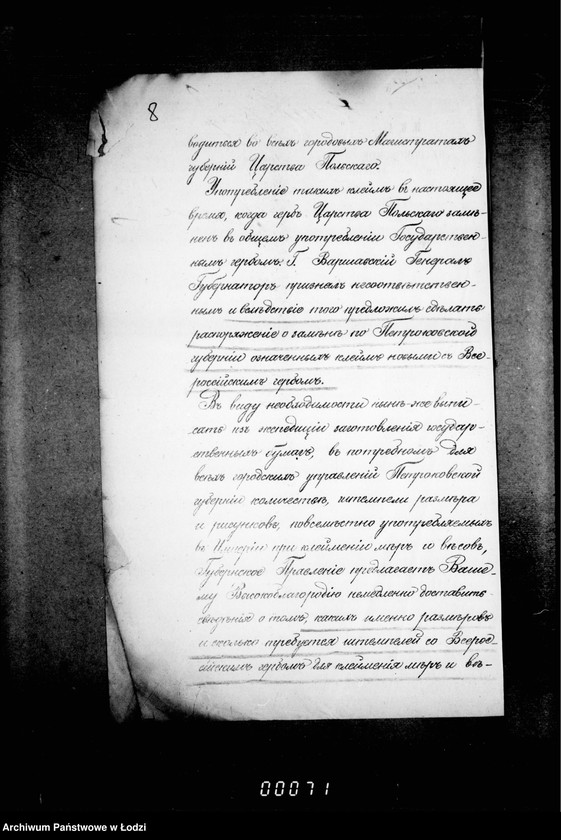 8
водится во всѣхъ городовыхъ Магистратахъ
губерній Царства Польскаго.
Употребленіе такихъ клеймъ въ настоящее
время, когда гербъ Царства Польскаго замѣ-
ненъ въ общемъ употребленіи Государствен-
нымъ гербомъ: Г. Варшавскій Генералъ
Губернаторъ призналъ несоотвѣтствен-
нымъ и вслѣдствіе того предложилъ сдѣлать
распоряженіе о замѣнѣ по Петроковской
губерніи означенныхъ клеймъ новыми съ Все-
россійскимъ гербомъ.
Въ виду необходимости нынѣ-же выпи-
сать изъ экспедиціи заготовленія государ-
ственныхъ бумагъ, въ потребномъ для
всѣхъ городскихъ управленій Петроковской
губерніи количествѣ, штемпели размѣра
и рисунковъ, повсемѣстно употребляемыхъ
въ Имперіи при клейменіи мѣръ и вѣсовъ,
Губернское Правленіе предлагаетъ Ваше-
му Высокоблагородію немедленно доставить
свѣдѣнія о томъ, какихъ именно размѣровъ
и сколько требуется штемпелей со Всерос-
сійскимъ гербомъ для клейменія мѣръ и вѣ-
00071
Archiwum Państwowe w Łodzi